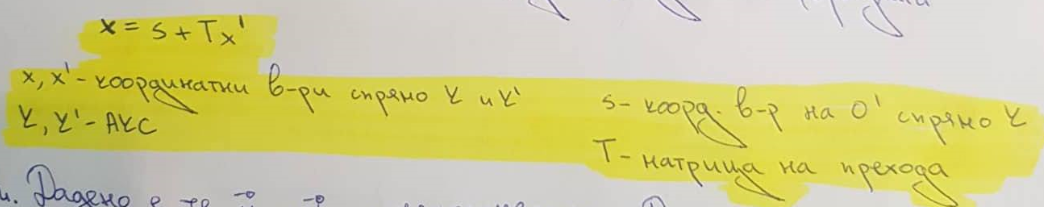 x = s + Tx'
x, x' - координатни в-ри спряно K и K'
K, K' - АКС
s - коорд. в-р на O' спряно K
T - матрица на прехода
и. Дадено е